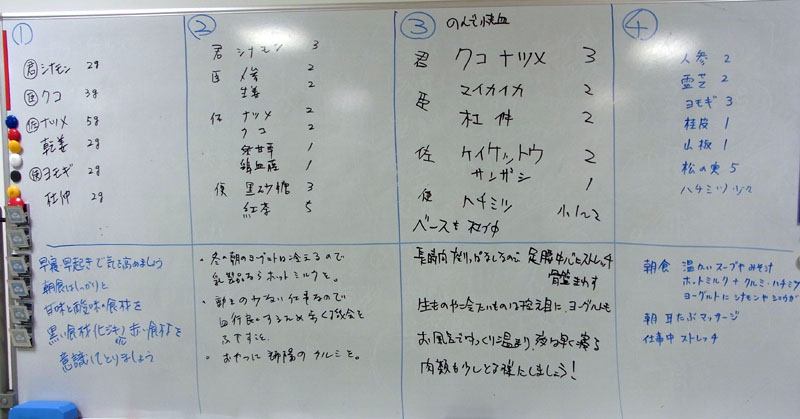 ①
君 シナモン 2g
臣 クコ 3g
佐 ナツメ 5g
乾姜 2g
使 ヨモギ 2g
杜仲 2g
早寝早起きで気を高めましょう
朝食はしっかりと
甘味と酸味の食材を
黒い食材 赤い食材を
意識してとりましょう
②
君 シナモン 3
臣 人参 2
生姜 2
佐 ナツメ 2
クコ 2
1
鶏血藤 1
使 黒砂糖 3
紅茶 5
・冬の朝のヨーグルトは冷えるので
乳製品ならホットミルクを。
・動きの少ない仕事なので
血行良くするため歩く機会を
ふやすこと。
・おやつに クルミを。
③ のんで快血
君 クコ ナツメ 3
臣 マイカイカ 2
杜仲 2
佐 ケイケットウ 2
サンザシ 1
使 ハチミツ 小1〜2
ベースを
長時間 足腰中心にストレッチ
骨盤まわす
生ものや冷たいものは控え目に、ヨーグルトも
お風呂でゆっくり温まり、夜は早く寝る
肉類も少しとる様にしましょう！
④
人参 2
霊芝 2
ヨモギ 3
桂皮 1
山椒 1
松の実 5
ハチミツ 少々
朝食 温かいスープやみそ汁
ホットミルク + クルミ・ハチミツ
ヨーグルトにシナモンやショウガ
朝 耳たぶマッサージ
仕事中 ストレッチ